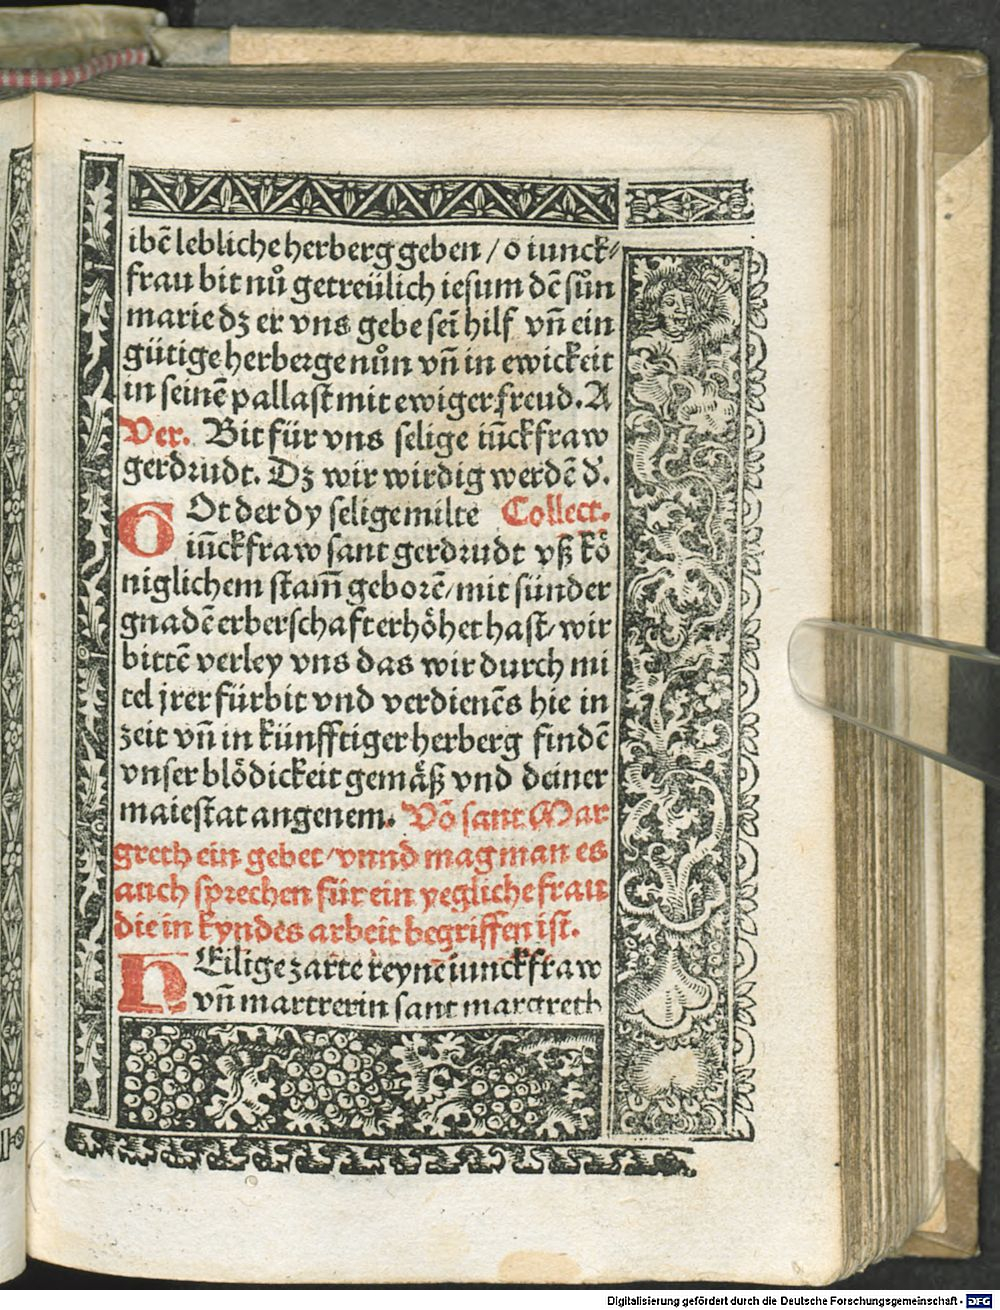 ibē lebliche herberg geben / o iunck⸗
frau bit nů getreülich iesum dē sůn
marie dz er vns gebe sei͂ hilf vn̄ ein
gütige herberge nůn vn̄ in ewickeit
in seinē pallast mit ewiger freud. A
Ver. Bit für vns selige iūckfraw
gerdrudt. Dz wir wirdig werdē d᷒.
GOt der dy selige milte Collect.
iūckfraw sant gerdrudt vß kö
niglichem stam̄ geborē/ mit sünder
gnadē erberschafft erhöhet hast/ wir
bittē verley vns das wir durch mi
tel jrer fürbit vnd verdienēs hie in
zeit vn̄ in künfftiger herberg findē
vnser blödickeit gemäß vnd deiner
maiestat angenem. Vō sant Mar
greth ein gebet/ vnnd mag man es
auch sprechen für ein yegliche frau
die in kyndes arbeit begriffen ist.
HEilige zarte reynē iunckfraw
vn̄ martrerin sant margreth
Digitalisierung gefördert durch die Deutsche Forschungsgemeinschaft - DFG